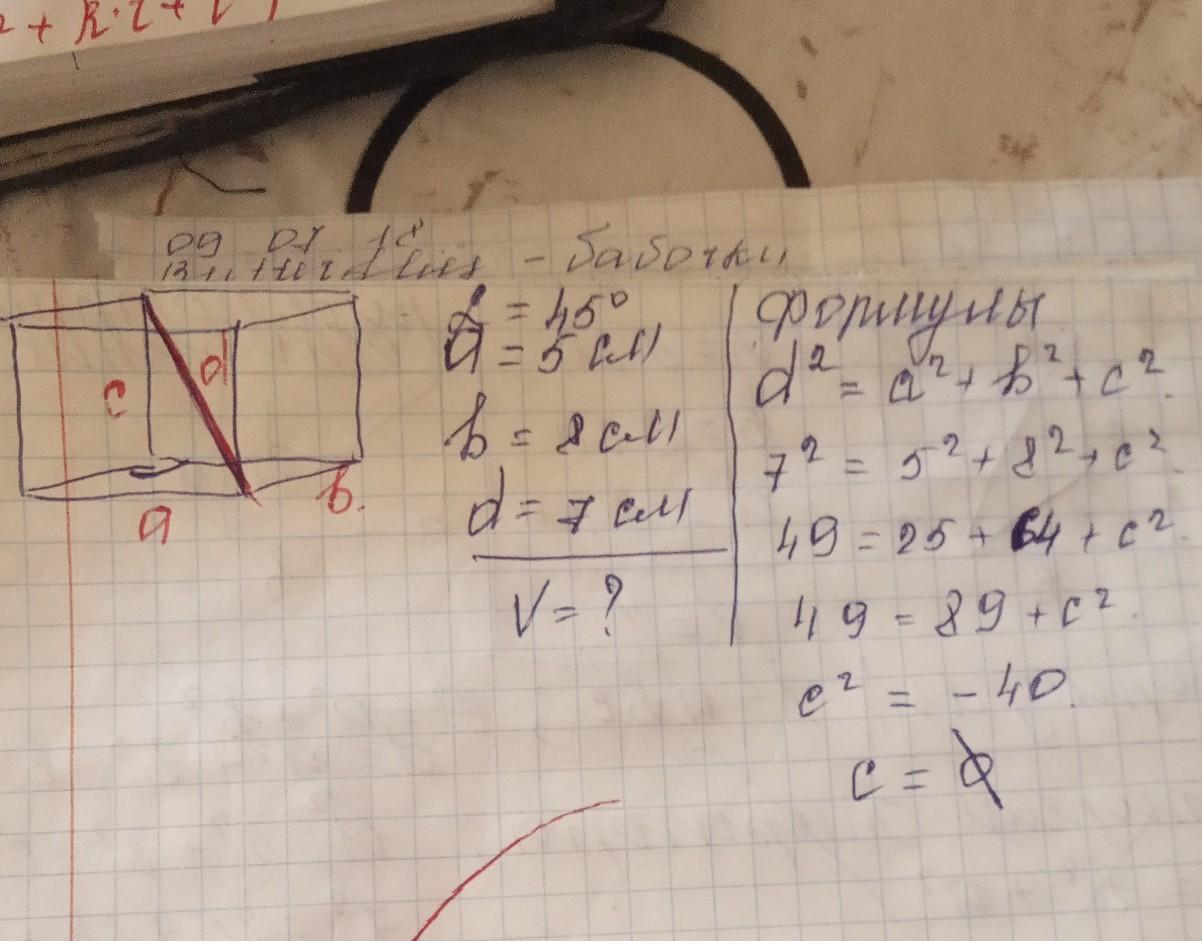 09 07 18
- бабочки
c
d
a
b.
α = 45°
a = 5 см
b = 8 см
d = 7 см
V = ?
формулы
d² = a² + b² + c².
7² = 5² + 8² + c²
49 = 25 + 64 + c².
49 = 89 + c².
c² = - 40.
c = ∅